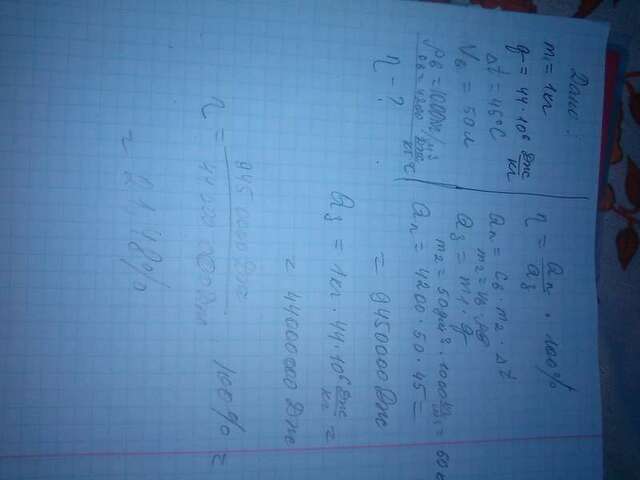 Дано:
m₁ = 1 кг
q = 44·10⁶ Дж/кг
Δt = 45°C
Vв = 50 л
ρв = 1000 кг/м³
cв = 4200 Дж/кг°C
η - ?
η = Qп/Qз · 100%
Qп = cв · m₂ · Δt
m₂ = Vв · ρв
Qз = m₁ · q
m₂ = 50 дм³ · 1000 = 50
Qп = 4200 · 50 · 45 =
= 9450000 Дж
Qз = 1кг · 44·10⁶ Дж/кг =
= 44000000 Дж
η = 9450000 Дж/44000000 Дж · 100% =
= 21,48%